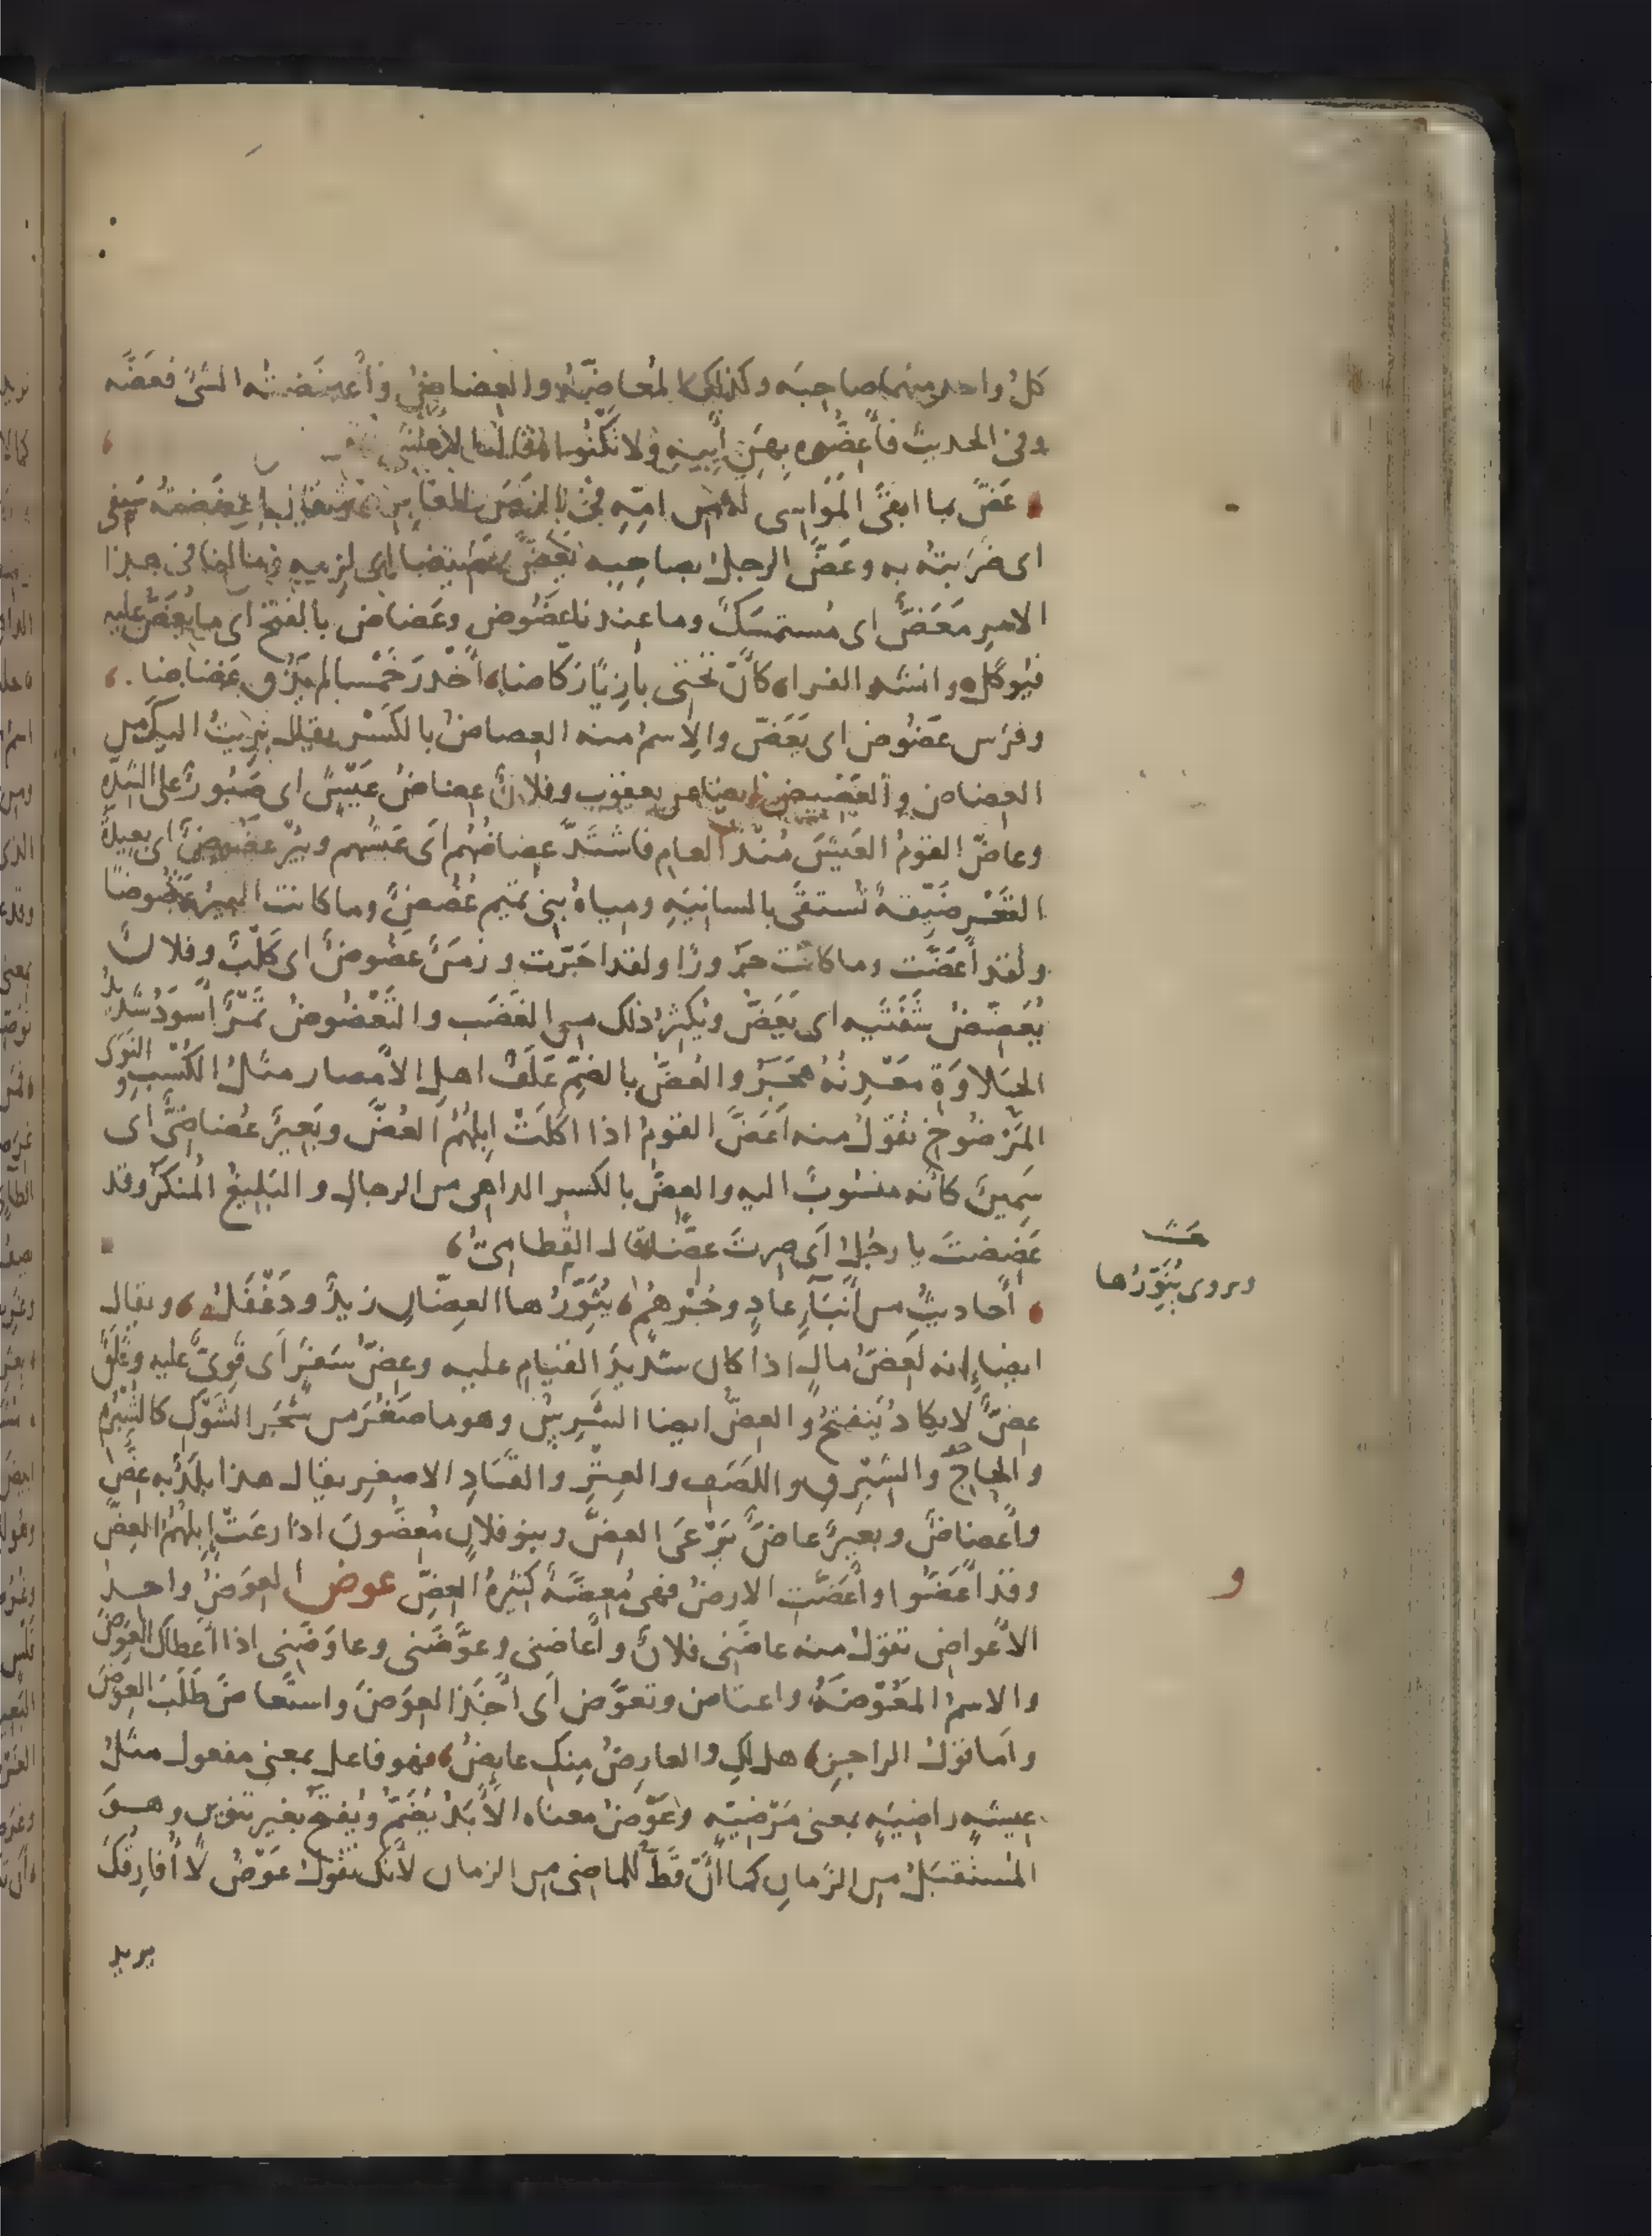 كلُّ واحد منهما صاحبَه وكذلك المُعاضّةُ والعِضاضُ وأَعضَضتُه الشئَ فعَضَّه
وفى الحديث فأَعِضُّوه بِهَنِ أَبيهِ ولا تَكْنُوا قال الاعشى
عَضَّ بما ابقَى المَوَاسى له من امِّه فى الزَمَن الغابِر ويقال أعضَضتُه سَيفى
اى ضرَبتُه به وعَضَّ الرجلُ بصاحِبِه يَعَضُّ عَضيضا اى لزِمه وما لنا فى هذا
الامرِ مَعَضٌّ اى مُستمسَكٌ وما عندنا عَضُوض وعَضاض بالفتح اى ما يُعَضُّ عليه
فيُوكل وانشد الفراء كأنّ تحتى بازِيًا رَكّاضا أَخْدَرَ خَمْسا لم يَذُق عَضاضا
وفرَس عَضُوض اى يَعَضّ والاسمُ منه العِضاضُ بالكَسْر يقال بَرِيتُ اليك من
العِضاض والعَضيض ايضا عن يعقوب وفلانٌ عِضاضُ عَيشٍ اى صَبُورٌ على الشدّة
وعاضَّ القومُ العَيشَ مُنذُ العام فاشتَدَّ عِضاضُهُم اى عَيشُهم وبئرٌ عَضُوضٌ اى بعيدةُ
القَعْرِ ضَيّقةٌ تُستقَى بالسانِيَةِ ومياهُ بنى تميم عُضُضٌ وما كانت البيرُ عَضُوضًا
ولقد أَعَضَّت وما كانت جَرُورًا ولقد اجَرَّت وزمَنٌ عَضُوضٌ اى كَلِبٌ وفلانٌ
يُعَضِّضُ شَفَتَيه اى يَعَضُّ ويُكثِرُ ذلك من الغَضَب والتَعْضُوضُ تَمْرٌ أَسوَدُ شديدُ
الحَلاوَةِ مَعْدِنُهُ هَجَرُ والعُضُّ بالضمّ عَلَفُ اهلِ الأَمصار مثلُ الكُسْب والنَوَى
المَرْضُوخ تقولُ منه أَعَضَّ القومُ اذا اكَلَتْ اِبِلُهُمُ العُضَّ وبَعِيرٌ عُضاضِىٌّ اى
سَمِينٌ كأنه منسُوبٌ اليه والعِضُّ بالكسر الداهى من الرجال والبَلِيغُ المُنكَرُ وقد
عَضِضتَ يا رجُلُ اى صِرتَ عِضًّا قال القُطامىُّ
أَحاديثُ من أَنبآءِ عادٍ وجُرْهُمٍ يُثَوِّرُها العِضّانِ زيدٌ ودَغْفَلُ ويقال
ايضا إنه لَعِضُّ مالٍ اذا كان شديدَ القيام عليه وعِضُّ سَفَرٍ اى قَوِىٌّ عليه وغَلَقٌ
عِضٌّ لا يكادُ يَنفتحُ والعِضُّ ايضا الشَّرِسُ وهو ما صَغُرَ من شَجَرِ الشَوْك كالشُبْرُم
والحاجِ والشِبْرِقِ واللَصَفِ والعِتْرِ والقَتَادِ الاصغرِ يقال هذا بلَدٌ به عِضٌّ
وأَعضاضٌ وبعيرٌ عاضٌّ يَرْعَى العِضَّ وبنو فلانٍ مُعِضُّونَ اذا رعَتْ اِبِلُهُمُ العِضَّ
وقد أَعَضُّوا وأَعَضَّتِ الارضُ فهى مُعِضَّةٌ كثيرةُ العِضِّ عوض العِوَضُ واحدُ
الأَعواضِ تقولُ منه عاضَنى فلانٌ وأَعاضنى وعوَّضَنى وعاوَضَنى اذا أعطاك العِوَضَ
والاسمُ المَعُوضَةُ واعتاض وتعوَّض اى أَخَذَ العِوَضَ واستَعاضَ طَلَبَ العِوَضَ
وأما قولُ الراجز هل لكِ والعارِضُ مِنكِ عايِضُ فهو فاعل بمعنى مفعول مثلُ
عيشةٍ راضيةٍ بمعنى مَرْضيّةٍ وعَوْضُ معناه الأَبَدُ يُضَمّ ويُفتَح بغير تنوين وهو
المُستقبَلُ من الزمانِ كما أنّ قَطُّ للماضى من الزمان لأنك تقولُ عَوْضُ لا أُفارِقُكَ
يريد
ويروى يُنَوِّرُها
و